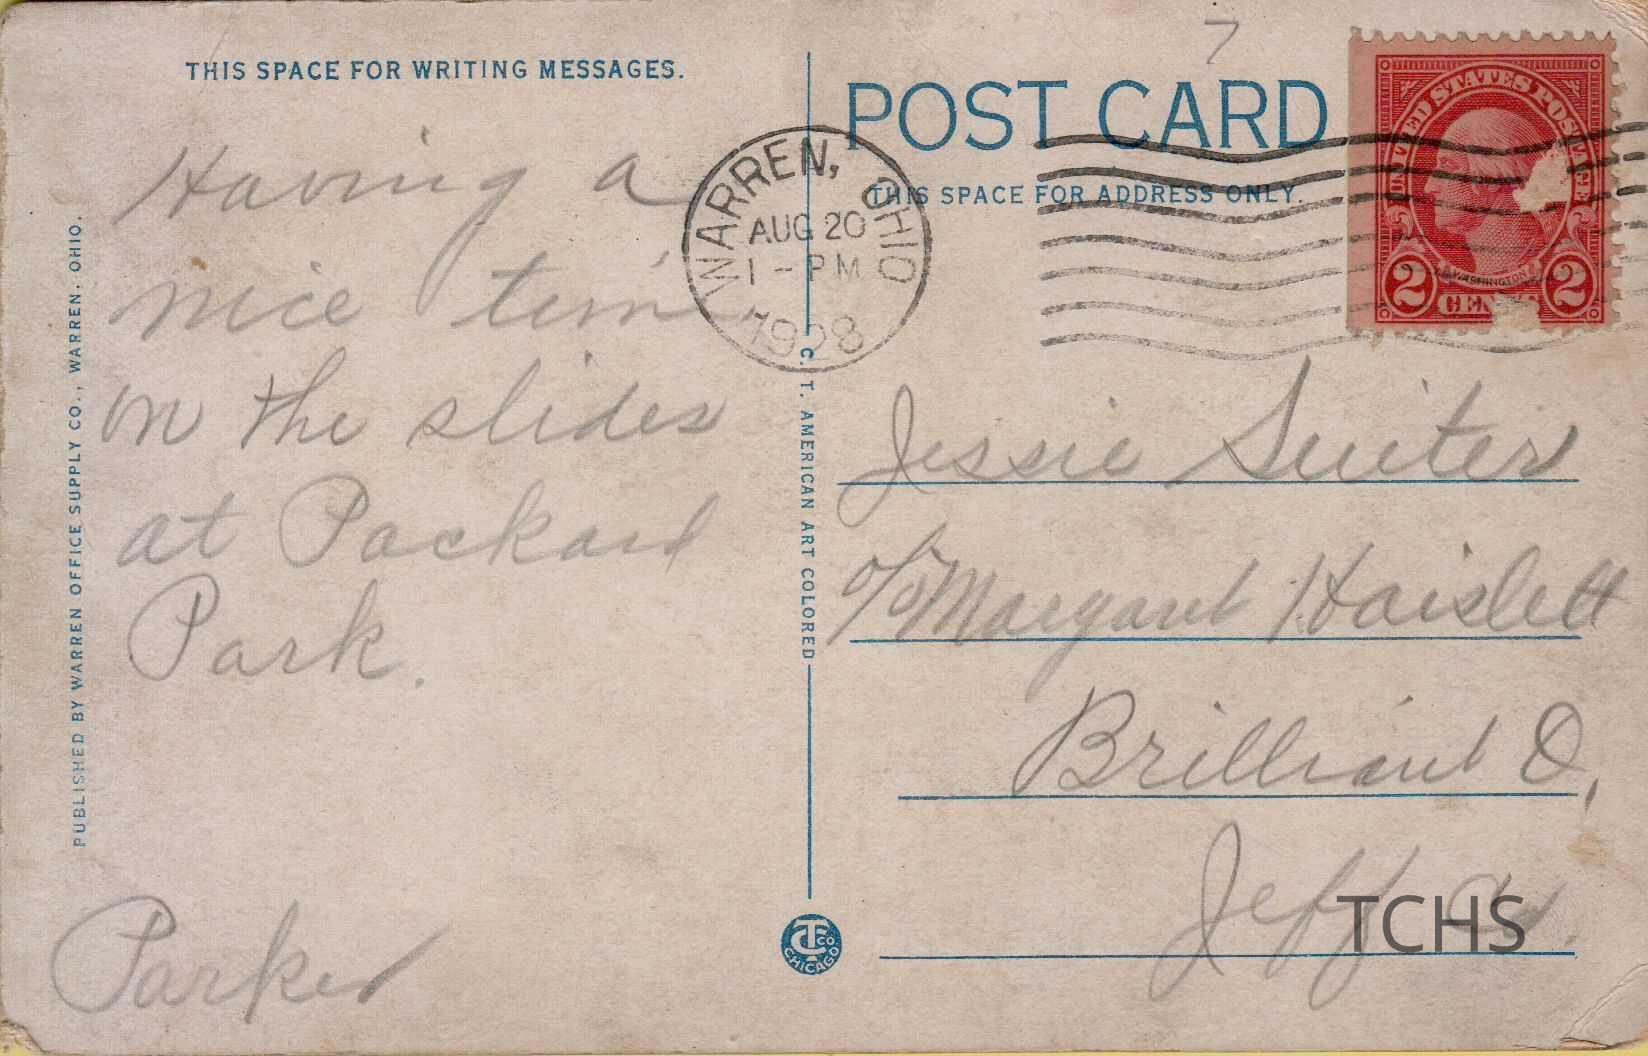 THIS SPACE FOR WRITING MESSAGES.
Having a
nice time
on the slides
at Packard
Park.
Parker
PUBLISHED BY WARREN OFFICE SUPPLY CO., WARREN, OHIO.
C. T. AMERICAN ART COLORED
CT CO
CHICAGO
7
POST CARD
THIS SPACE FOR ADDRESS ONLY.
WARREN, OHIO
AUG 20
1 - PM
1928
UNITED STATES POSTAGE
WASHINGTON
2 CENTS 2
Jessie Suiter
c/o Margaret Haislett
Brilliant O,
Jeff Co.
TCHS